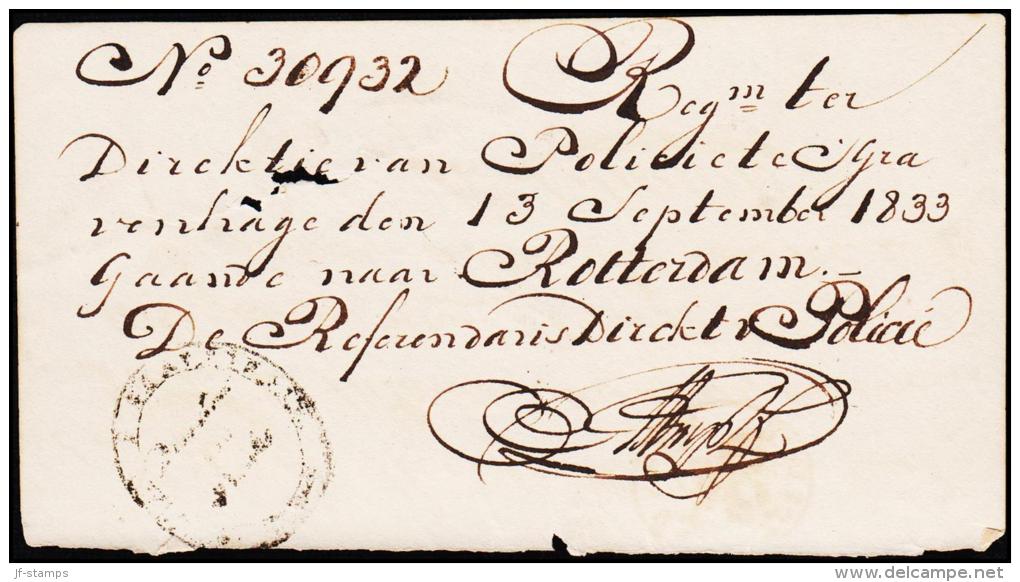 No 30932 Regm ter
Direktie van Policie te s'Gra
venhage den 13 September 1833
Gaande naar Rotterdam.–
De Referendaris Direktr Policié
jf-stamps
www.delcampe.net